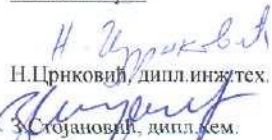 Н. Црнковић
Н.Црнковић, дипл.инж.тех.
З.Стојановић, дипл.хем.